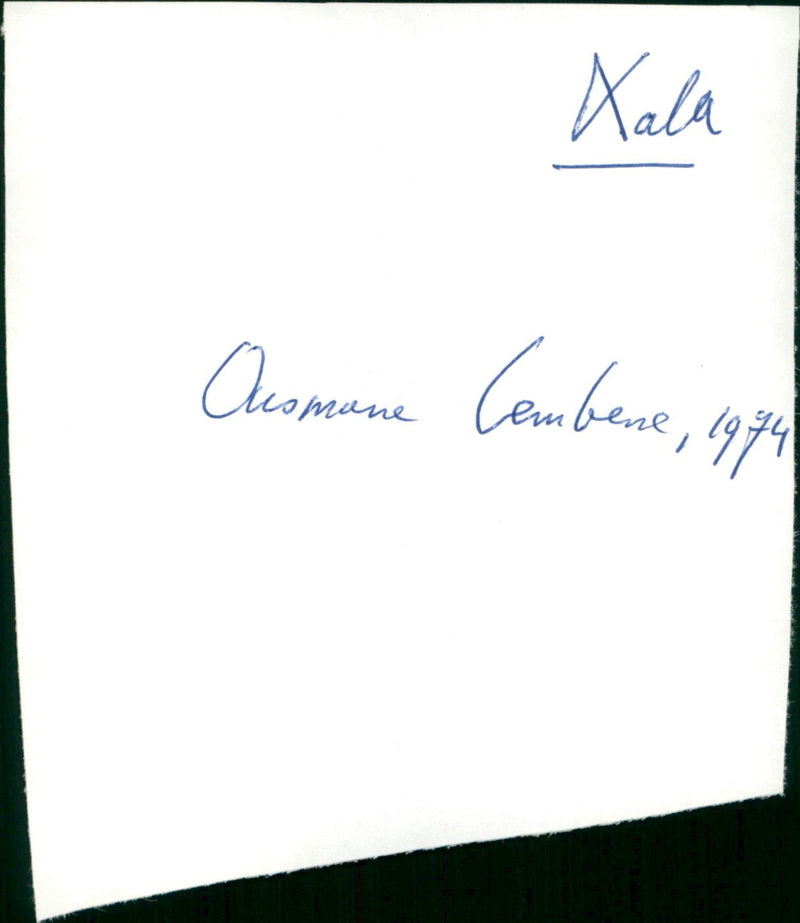 Xala
Ousmane Sembene, 1974